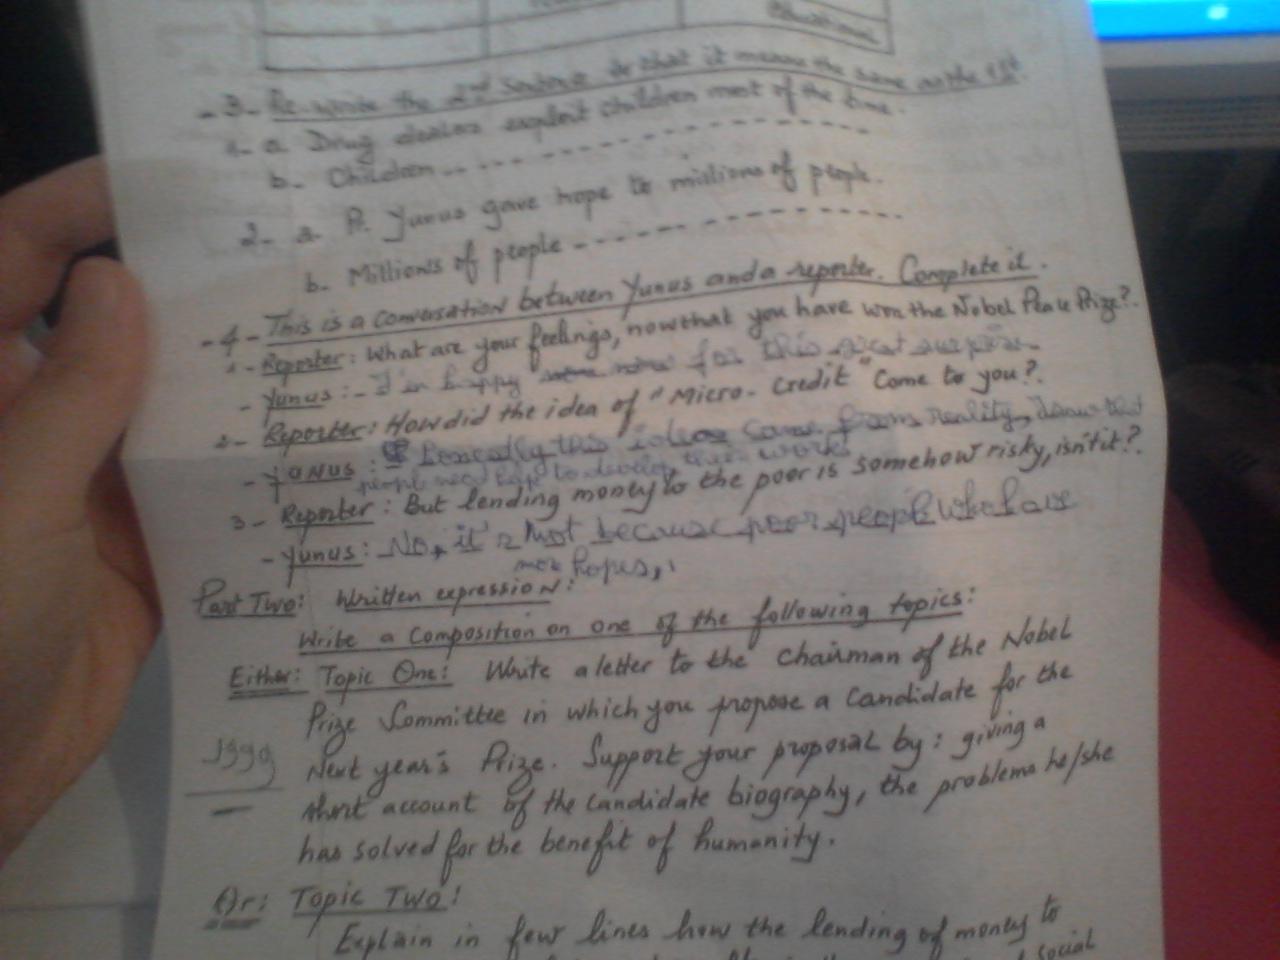 Educational
-3- Re-write the 2nd sentence so that it means the same as the 1st.
1- a. Drug dealers exploit children most of the time.
b. Children ----------
2- a. Pr. Yunus gave hope to millions of people.
b. Millions of people ----------
-4- This is a conversation between Yunus and a reporter. Complete it.
1- Reporter: What are your feelings, now that you have won the Nobel Peace Prize?.
- Yunus: - I'm happy for this surprise
2- Reporter: How did the idea of "Micro-credit" come to you?.
- Yunus: this idea came from reality, I saw that
people need help to develop their works
3- Reporter: But lending money to the poor is somehow risky, isn't it?.
- Yunus: No, it's Not because poor people who have
hopes,
Part Two: Written expression:
Write a composition on one of the following topics:
Either: Topic One: Write a letter to the chairman of the Nobel
Prize Committee in which you propose a candidate for the
Next year's Prize. Support your proposal by: giving a
short account of the candidate biography, the problems he/she
has solved for the benefit of humanity.
1999
Or: Topic Two:
Explain in few lines how the lending of money to
social